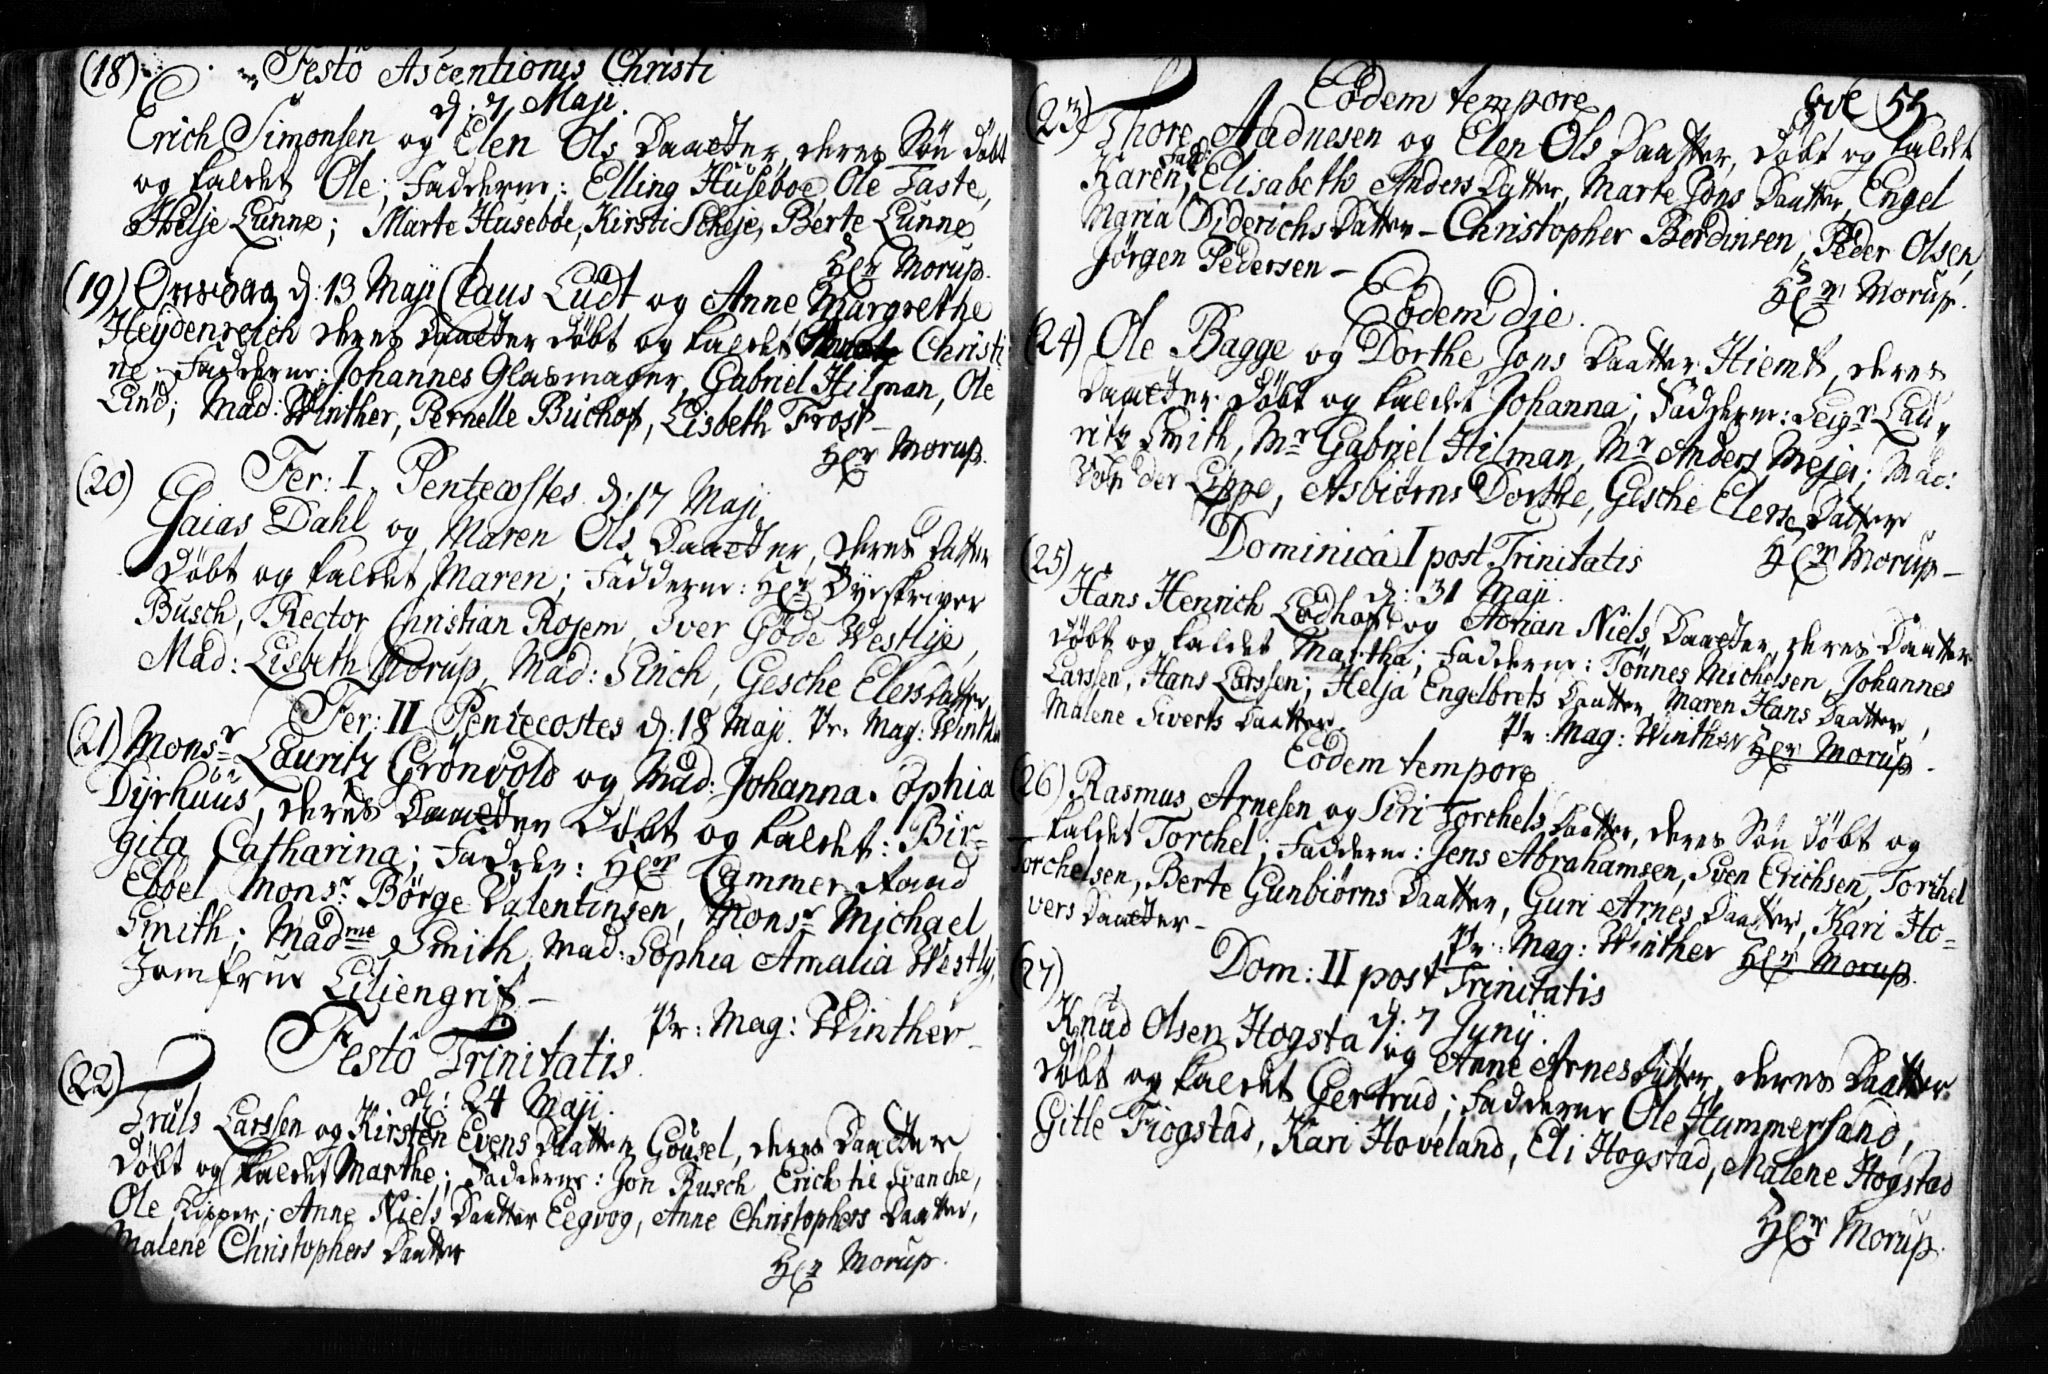 (18) Festo Ascentionis Christi
d: 7 Maji
Erich Simonsen og Elen Ols Daatter, deres Søn døbt
og kaldet Ole; Fadderne: Elling Husebøe, Ole Taste,
Helje Lunne; Marte Husebøe, Kirsti Scheje, Berte Lunne
Her Morup.
(19) Onsdag d: 13 Maji Claus Ludt og Anne Margrethe
Heydenreich deres Daatter døbt og kaldet Christi
ne. Fadderne: Johannes Glasmager, Gabriel Hilman, Ole
Lind; Mad: Winther, Pernelle Buchof, Lisbeth Frost
Her Morup.
(20) Fer: I Pentecostes d: 17 Maji
Esaias Dahl og Maren Ols Daatter, deres Datter
Døbt og kaldet Maren; Fadderne: Her Byeskriver
Busch, Rector Christian Rosem, Iver Göde Westlye,
Mad: Lisbeth Morup, Mad: Finch, Gesche Elers Datter
Fer: II Pentecostes d: 18 Maji. Pr. Mag: Winther
(21) Monsr Lauritz Grönvold og Mad: Johanna Sophia
Dyrhuus, deres Daatter Døbt og kaldet: Bir-
gita Catharina; Fadder: Her Cammer-Raad
Ebbel Monsr: Börge Valentinsen, Monsr Michael
Smith; Madme Smith, Mad: Sophia Amalia Westly,
Jomfrue Liliengrif
Pr: Mag: Winther
Festo Trinitatis.
(22) d: 24 Maji.
Truls Larssen og Kirsten Evens Daatter Gousel, deres Daatter
Døbt og kaldet Marthe; Fadderne: Jon Rusch Erich tie Svanche,
Ole Kipper; Anne Niels Daatter Eegvog, Anne Christophers Daatter,
Malene Christophers Daatter
Her Morup.
55
Eodem tempore
(23) Thore Aadnesen og Elen Ols Daatter, døbt og kaldet
Karen, Fadd: Elisabeth Anders Dytter, Marte Jons Daatter, Engel
Maria Diderichs Datter - Christopher Berdinsen, Peder Olsen,
Jørgen Pedersen -
Her Morup.
Eodem die.
(24) Ole Bagge og Dorthe Jons Daatter Hiemt, deres
Daatter døbt og kaldet Johanna; Fadderne: Seigr Lau-
ritz Smith, Mr Gabriel Hilman, Mr Anders Mejer; Mad:
Von der Lippe, Asbiørns Dorthe, Gesche Elerse Datter
Her Morup -
Dominica I post Trinitatis
(25) d: 31 Maji.
Hans Henrich Lodhof og Adrian Niels Daatter, deres Daatter
døbt og kaldet Martha; Fadderne: Tönnes Michelsen, Johannes
Larssen, Hans Larssen; Helja Engelbrets Daatter, Maren Hans Daatter,
Malene Siverts Daatter.
Pr: Mag: Winther Her Morup.
Eodem tempore
(26) Rasmus Arnesen og Siri Torchels Daatter, deres Søn døbt og
kaldet Torchel; Fadderne: Jens Abrahamsen, Sven Erichsen, Torchel
Torchelsen, Berte Gunbiörns Daatter, Guri Arnes Daatter, Kari Ho-
vers Daatter -
Pr: Mag: Winther Her Morup.
(27) Dom: II post Trinitatis
d: 7 Junij.
Knud Olsen Hogstad og Anne Arnes Datter, deres Daatter
døbt og kaldet Gertrud; Fadderne Ole Hummersand,
Gitle Tiogstad, Kari Hoveland, Eli Hogstad, Malene Hogstad
Her Morup.